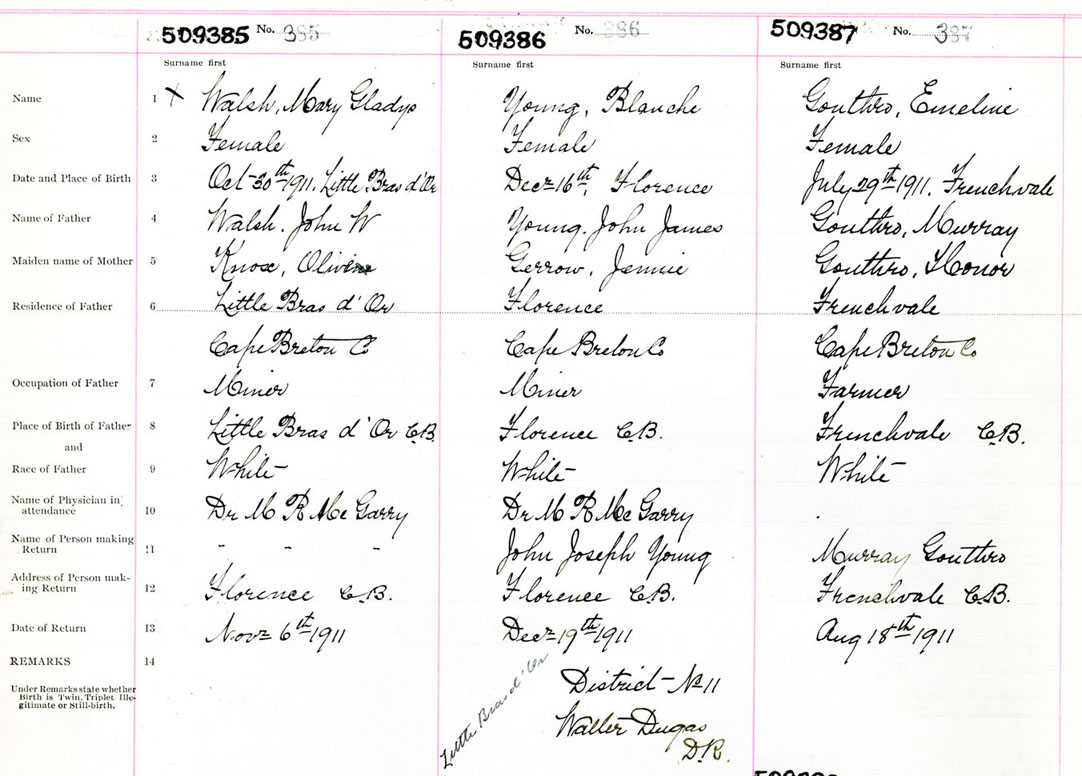 509385 No. 385 509386 No. 386 509387 No. 387
Surname first Surname first Surname first
Name 1 X Walsh, Mary Gladys Young, Blanche Gouthro, Emeline
Sex 2 Female Female Female
Date and Place of Birth 3 Oct 30th 1911. Little Bras d'Or Decr 16th, Florence July 29th 1911. Frenchvale
Name of Father 4 Walsh. John W Young. John James Gouthro, Murray
Maiden name of Mother 5 Knox, Gerrow, Jennie Gouthro, Honor
Residence of Father 6 Little Bras d'Or Florence Frenchvale
Cape Breton Co Cape Breton Co Cape Breton Co
Occupation of Father 7 Miner Miner Farmer
Place of Birth of Father 8 Little Bras d'Or C.B. Florence C.B. Frenchvale C.B.
and
Race of Father 9 White White White
Name of Physician in
attendance 10 Dr M R Mc Garry Dr M R Mc Garry
Name of Person making
Return 11 - - - John Joseph Young Murray Gouthro
Address of Person mak-
ing Return 12 Florence C.B. Florence C.B. Frenchvale C.B.
Date of Return 13 Novr 6th 1911 Decr 19th 1911 Aug 18th 1911
REMARKS 14
Under Remarks state whether
Birth is Twin, Triplet Ille-
gitimate or Still-birth.
Little Bras d'Or
District No 11
Walter Dugas
D.R.